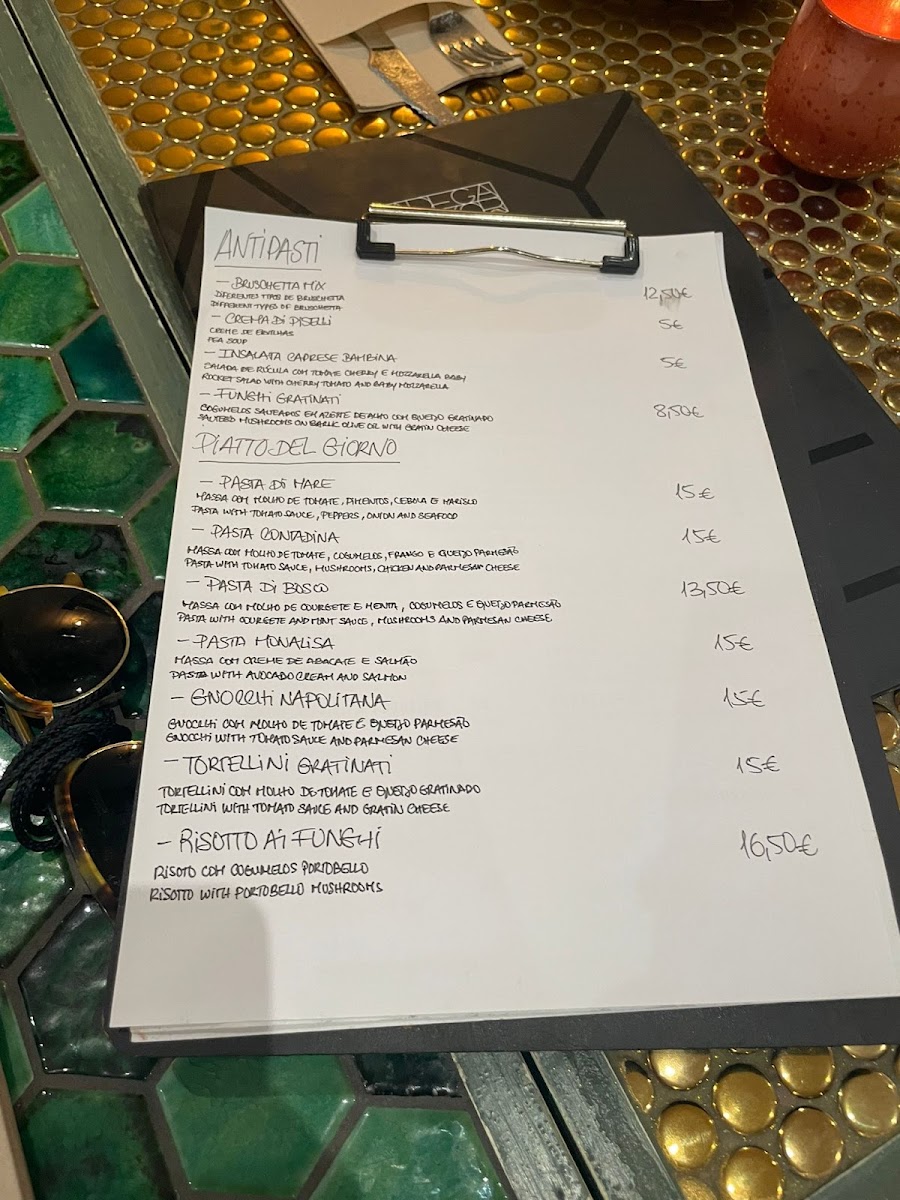 ANTIPASTI
- BRUSCHETTA MIX 12,50€
DIFERENTES TIPOS DE BRUSCHETTA
DIFFERENT TYPES OF BRUSCHETTA
- CREMA DI PISELLI 5€
CREME DE ERVILHAS
PEA SOUP
- INSALATA CAPRESE BAMBINA 5€
SALADA DE RÚCULA COM TOMATE CHERRY E MOZZARELLA BABY
ROCKET SALAD WITH CHERRY TOMATO AND BABY MOZZARELLA
- FUNGHI GRATINATI 8,50€
COGUMELOS SALTEADOS EM AZEITE DE ALHO COM QUEIJO GRATINADO
SAUTEED MUSHROOMS ON GARLIC OLIVE OIL WITH GRATIN CHEESE
PIATTO DEL GIORNO
- PASTA DI MARE 15€
MASSA COM MOLHO DE TOMATE, PIMENTOS, CEBOLA E MARISCO
PASTA WITH TOMATO SAUCE, PEPPERS, ONION AND SEAFOOD
- PASTA CONTADINA 15€
MASSA COM MOLHO DE TOMATE, COGUMELOS, FRANGO E QUEIJO PARMESÃO
PASTA WITH TOMATO SAUCE, MUSHROOMS, CHICKEN AND PARMESAN CHEESE
- PASTA DI BOSCO 13,50€
MASSA COM MOLHO DE COURGETE E MENTA, COGUMELOS E QUEIJO PARMESÃO
PASTA WITH COURGETE AND MINT SAUCE, MUSHROOMS AND PARMESAN CHEESE
- PASTA MONALISA 15€
MASSA COM CREME DE ABACATE E SALMÃO
PASTA WITH AVOCADO CREAM AND SALMON
- GNOCCHI NAPOLITANA 15€
GNOCCHI COM MOLHO DE TOMATE E QUEIJO PARMESÃO
GNOCCHI WITH TOMATO SAUCE AND PARMESAN CHEESE
- TORTELLINI GRATINATI 15€
TORTELLINI COM MOLHO DE TOMATE E QUEIJO GRATINADO
TORTELLINI WITH TOMATO SAUCE AND GRATIN CHEESE
- RISOTTO AI FUNGHI 16,50€
RISOTO COM COGUMELOS PORTOBELLO
RISOTTO WITH PORTOBELLO MUSHROOMS